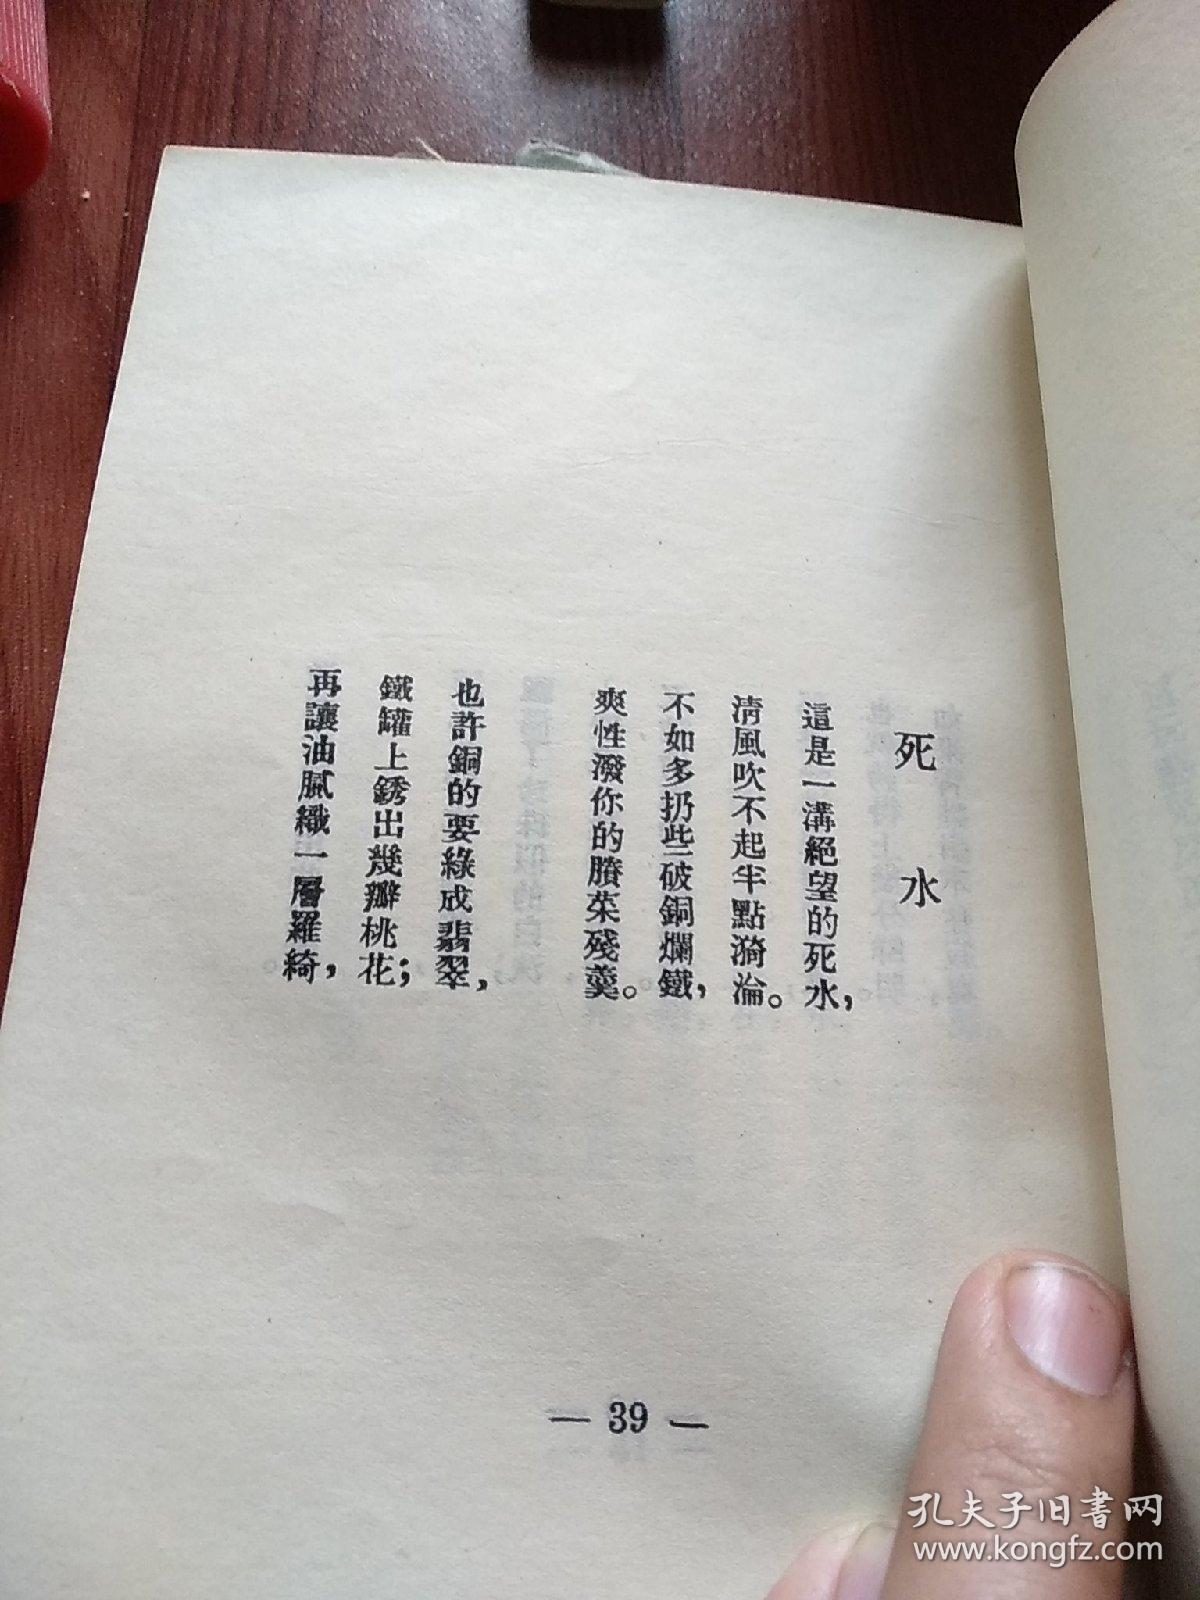 死水
這是一溝絕望的死水，
淸風吹不起半點漪淪。
不如多扔些破銅爛鐵，
爽性潑你的賸菜殘羹。
也許銅的要綠成翡翠，
鐵罐上銹出幾瓣桃花；
再讓油膩織一層羅綺，
— 39 —
孔夫子旧书网
www.kongfz.com